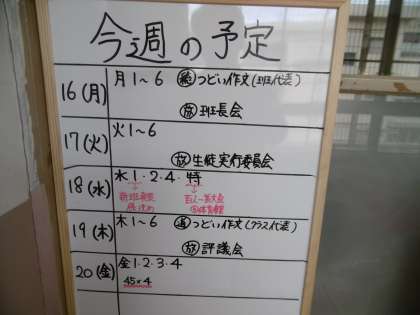 今週の予定
16(月) 月1~6 ㊗つどい作文(班代表)
放 班長会
17(火) 火1~6
放 生徒実行委員会
18(水) 水1・2・4・特
百人一首大会
体育館
19(木) 木1~6 つどい作文(クラス代表)
放 評議会
20(金) 金1・2・3・4
45×4